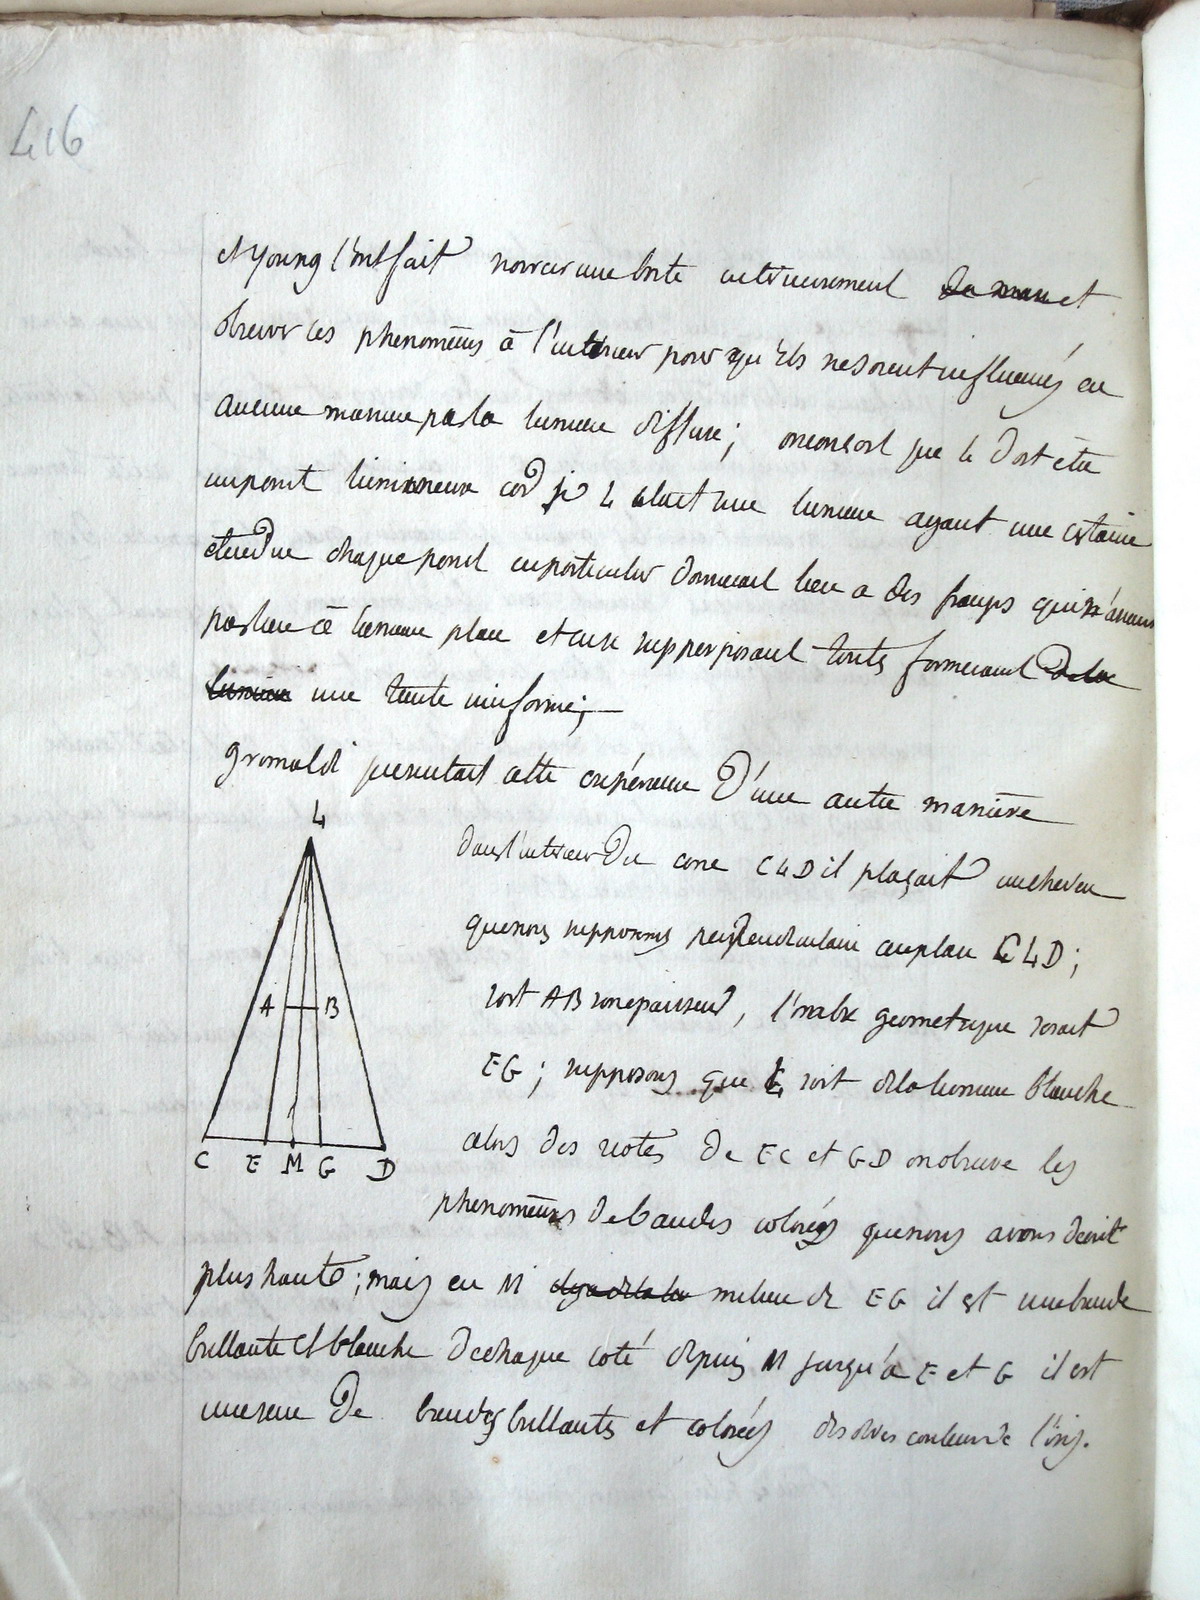 416
et Young l'ont fait noircir une boite interieurement de man et
observer ces phenomènes à l'interieur pour qu'ils ne soient influencés en
aucune maniere par la lumiere diffuse; on conçoit que L doit être
un point lumineux car si L etait une lumiere ayant une certaine
étendue chaque point en particulier donnerait lieu a des franges qui n'auraient
pas lieu à la meme place et en se supperposant toutes formeraient de la
lumiere une teinte uniforme;
Grimaldi presentait cette expérience d'une autre manière
L
dans l'interieur du cone CLD il plaçait un cheveu
que nous supposons perpendiculaire au plan CLD;
A B
soit AB son epaisseur, l'ombre geometrique serait
EG; supposons que L soit de la lumiere blanche
alors des cotés de EC et GD on observe les
C E M G D
phenomènes de bandes colorées que nous avons decrit
plus haut; mais en M milieu de EG il est une bande
brillante et blanche de chaque coté depuis M jusqu'à E et G il est
une serie de bandes brillantes et colorées des couleurs de l'iris.